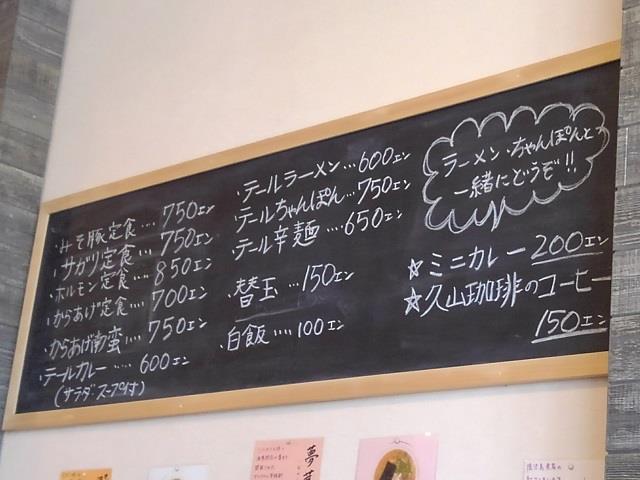 ・みそ豚定食‥‥750エン
・サガリ定食‥‥750エン
・ホルモン定食‥‥850エン
・からあげ定食‥‥700エン
・からあげ南蛮‥‥750エン
・テールカレー‥‥600エン
(サラダ・スープ付)
・テールラーメン…600エン
・テールちゃんぽん…750エン
・テール辛麺…650エン
・替玉…150エン
・白飯‥‥100エン
ラーメン・ちゃんぽんと
一緒にどうぞ!!
☆ミニカレー 200エン
☆久山珈琲のコーヒー
150エン